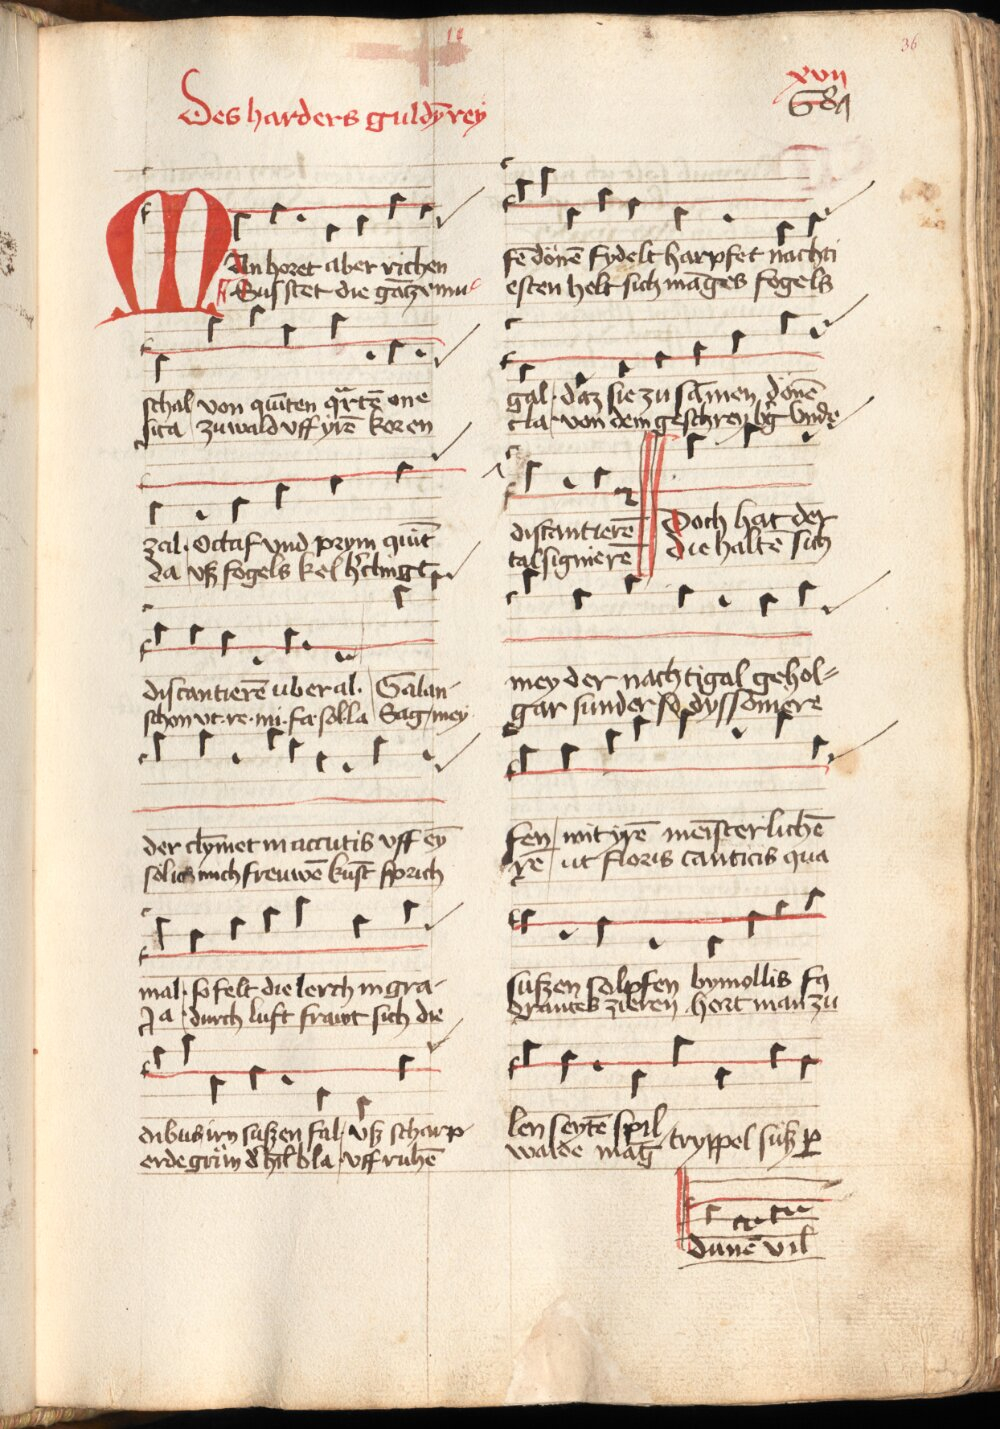 36
xvii
Des harders guldȳ rey
Man horet aber richen
Sus stet die gātze mu
schal von quīten qrtē one
sica zu wald vff yrē koren
zal. Octaf vnd prym quīt
da vß fogels kel
discantierē uberal. Galan-
schon vt. re. mi. fa sol. la Sag mey
der clymet in accutis vff ey
solich mich freuwē kust sprich
mal. so felt die lerch in gra-
Ja durch luft frawt sich die
dibus irn sußen fal, vß scharp
erde grün bla vff ruhē
fē dönē fydelt harpfet nachti
esten helt sich māges fogels
gal. daz sie zu samen dönē
cla. von dem geschrey vnde
discantierē
tal signierē
Doch hat der
die haltē sich
mey der nachtigal gehol-
gar sunder so dyssonere
fen mit yrē meisterlichē
rē ut floris canticis qua
sußen solpfen bymollis fa
drantes zieren hort man zu
len seytē spil tryppel süß
walde māg
dunē vil